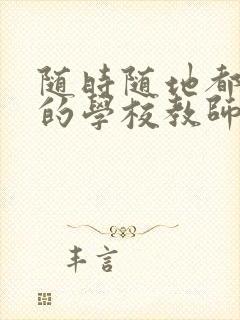 随時随地都
的學校教師
丰言